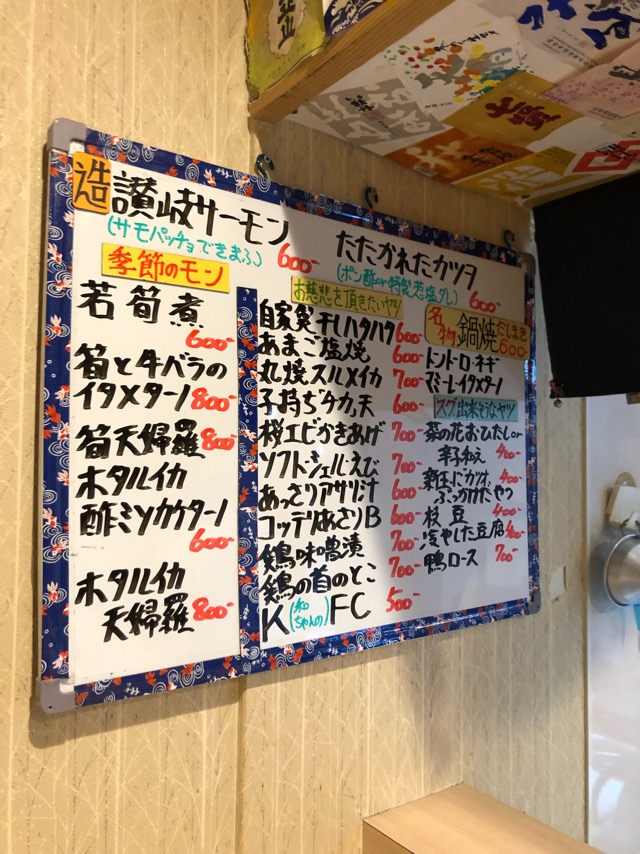 造 讃岐サーモン
(サモパッチョできまふ) 600-
たたかれたカツヲ
(ポン酢or特製若塩ダレ) 600-
季節のモン
若筍煮
600-
筍と牛バラの
イタメターノ 800-
筍天婦羅 800-
ホタルイカ
酢ミソカケターノ
600-
ホタルイカ
天婦羅 800-
お慈悲を頂きたいヤツ
自家製干しハタハタ 600-
あまご塩焼 600-
丸焼スルメイカ 700-
子持ちチカ天 600-
桜エビかきあげ 700-
ソフトシェルえび 700-
あっさりアサリ汁 600-
コッテリあさりB 600-
鶏味噌漬 700-
鶏の首のとこ 700-
K(和ちゃんの)FC 500-
名物 鍋焼だしまき 600
トントロネギ
マミーレイタメターノ
スグ出来そうなヤツ
菜の花おひたしor
辛子和え 400-
新玉にカツオ
ぶっかけたやつ 400-
枝豆 400-
冷やした豆腐 400-
鴨ロース 700-